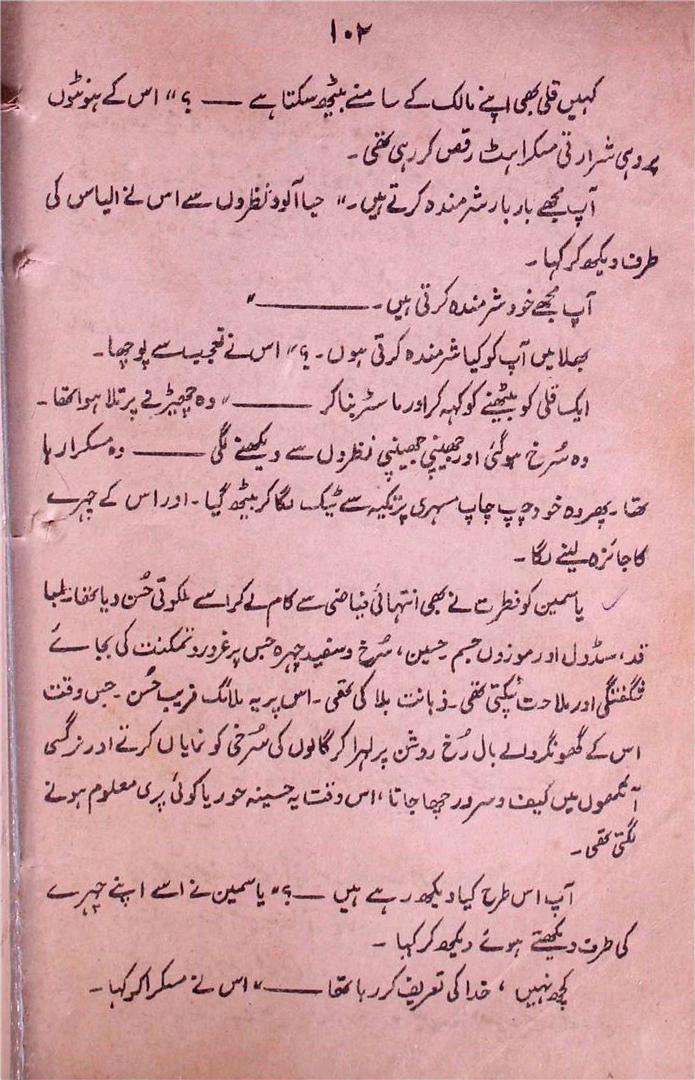 ۱۰۲
کہیں قلی بھی اپنے مالک کے سامنے بیٹھ سکتا ہے ــــ ؟" اس کے ہونٹوں
پر وہی شرارتی مسکراہٹ رقص کر رہی تھی۔
آپ مجھے بار بار شرمندہ کرتے ہیں۔" حیا آلود نظروں سے اس نے الیاس کی
طرف دیکھ کر کہا۔
آپ مجھے خود شرمندہ کرتی ہیں۔ ــــــــــ"
بھلا میں آپ کو کیا شرمندہ کرتی ہوں۔ ؟" اس نے تعجب سے پوچھا۔
ایک قلی کو بیٹھنے کو کہہ کر اور ماسٹر بنا کر ــــــــ" وہ چھیڑنے پر تلا ہوا تھا۔
وہ سُرخ ہو گئی اور جھینپی جھینپی نظروں سے دیکھنے لگی ــــــــ وہ مسکرا رہا
تھا۔ پھر وہ خود چپ چاپ مسہری پر تکیہ سے ٹیک لگا کر بیٹھ گیا۔ اور اس کے چہرے
کا جائزہ لینے لگا۔
یاسمین کو فطرت نے بھی انتہائی فیاضی سے کام لے کر اسے ملکوتی حُسن دیا تھا۔ لمبا
قد، سڈول اور موزوں جسم۔ حسین، سُرخ و سفید چہرہ جس پر غرور و تمکنت کی بجائے
شگفتگی اور ملاحت ٹپکتی تھی۔ ذہانت بلا کی تھی۔ اس پر یہ ملائک فریب حُسن۔ جس وقت
اس کے گھونگرولے بال رُخِ روشن پر لہرا کر گالوں کی سُرخی کو نمایاں کرتے اور نرگسی
آنکھوں میں کیف و سرور چھا جاتا، اس وقت یہ حسینہ حور یا کوئی پری معلوم ہونے
لگتی تھی۔
آپ اس طرح کیا دیکھ رہے ہیں ــــ ؟" یاسمین نے اسے اپنے چہرے
کی طرف دیکھتے ہوئے دیکھ کر کہا۔
کچھ نہیں ، خدا کی تعریف کر رہا تھا ــــــ" اس نے مسکرا کر کہا۔